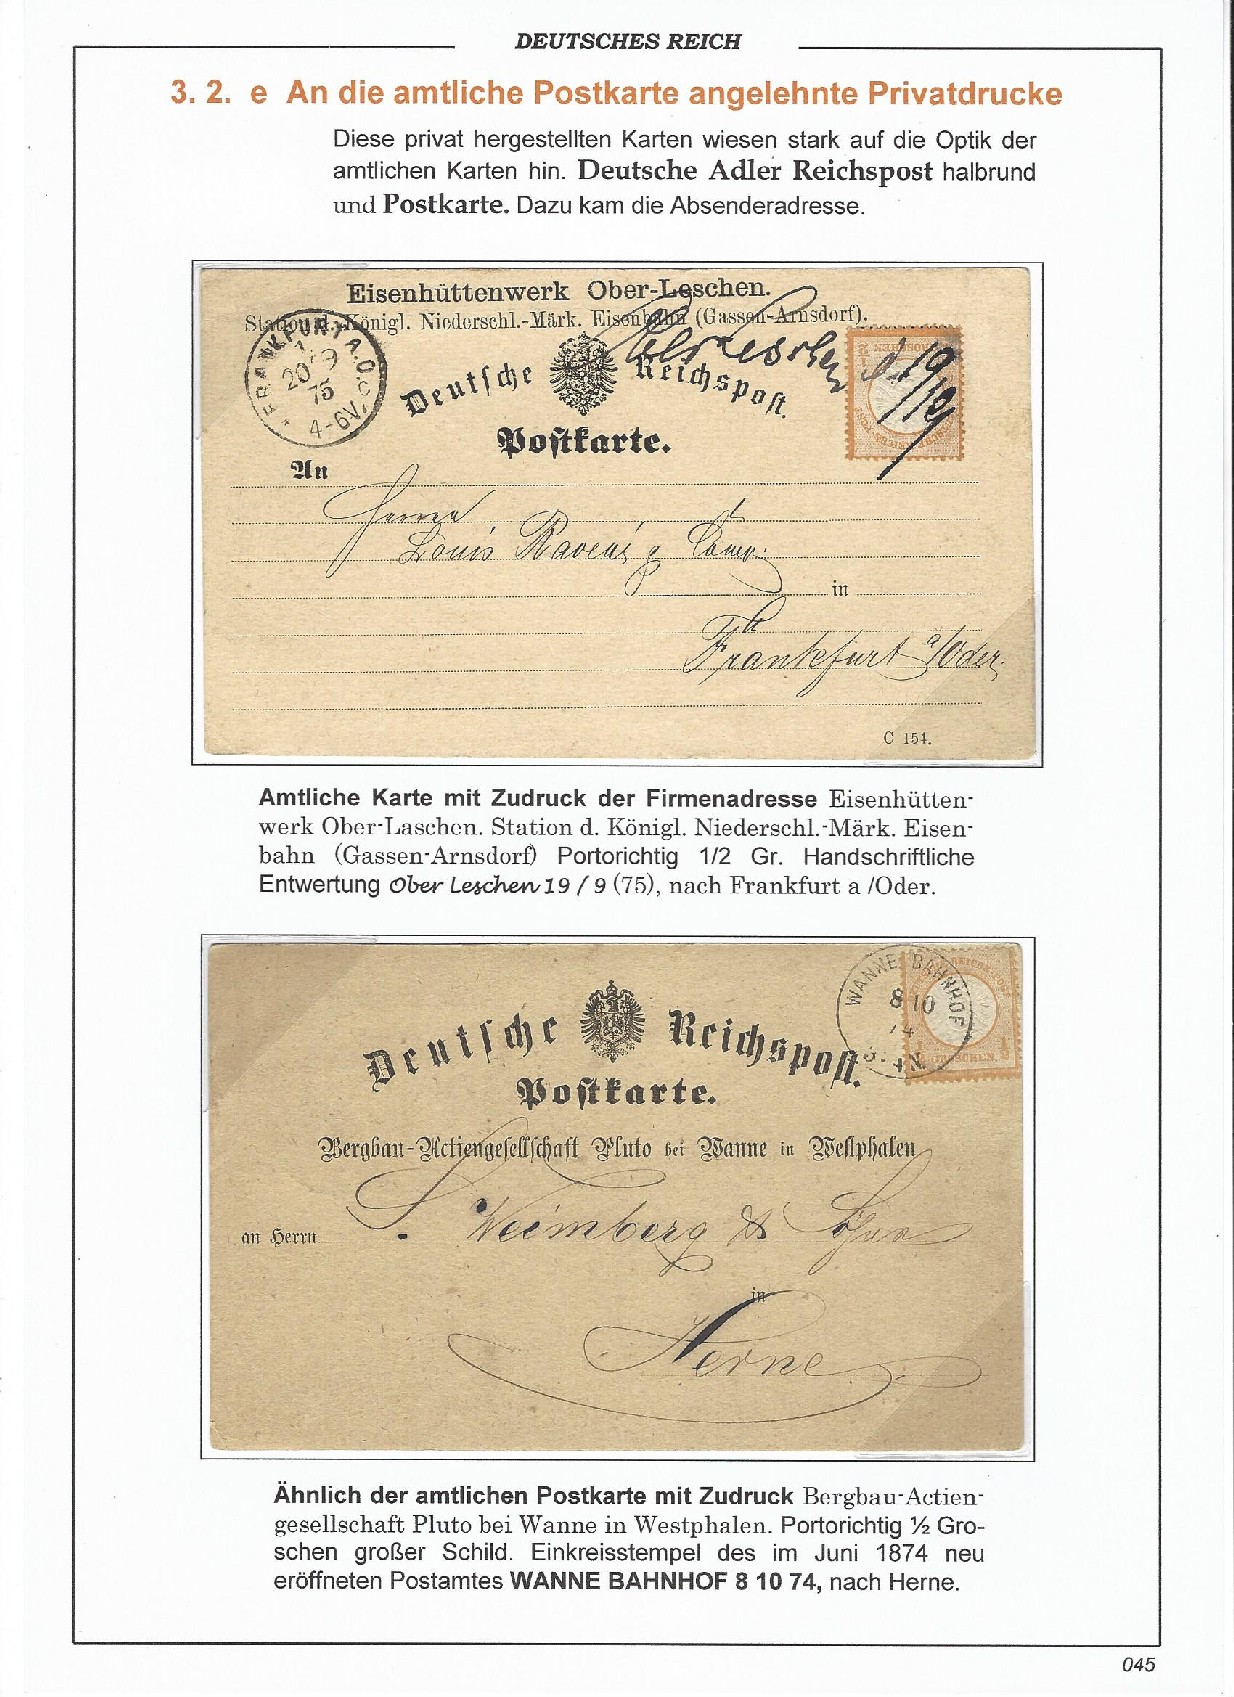 DEUTSCHES REICH
3. 2. e An die amtliche Postkarte angelehnte Privatdrucke
Diese privat hergestellten Karten wiesen stark auf die Optik der
amtlichen Karten hin. Deutsche Adler Reichspost halbrund
und Postkarte. Dazu kam die Absenderadresse.
Eisenhüttenwerk Ober-Leschen.
Station d. Königl. Niederschl.-Märk. Eisenbahn (Gassen-Arnsdorf).
FRANKFURT A.O.
20 9
75
4-6V.
Ober Leschen
d. 19/9
Deutsche Reichspost.
Postkarte.
An
Herren
Louis Ravené & Comp.
in
Frankfurt a/Oder.
C 154.
Amtliche Karte mit Zudruck der Firmenadresse Eisenhütten-
werk Ober-Laschen. Station d. Königl. Niederschl.-Märk. Eisen-
bahn (Gassen-Arnsdorf) Portorichtig 1/2 Gr. Handschriftliche
Entwertung Ober Leschen 19 / 9 (75), nach Frankfurt a /Oder.
WANNE BAHNHOF
8 10
74
GROSCHEN.
Deutsche Reichspost.
Postkarte.
Bergbau-Actiengesellschaft Pluto bei Wanne in Westphalen
an Herrn S. Weimberg &
in
Herne
Ähnlich der amtlichen Postkarte mit Zudruck Bergbau-Actien-
gesellschaft Pluto bei Wanne in Westphalen. Portorichtig ½ Gro-
schen großer Schild. Einkreisstempel des im Juni 1874 neu
eröffneten Postamtes WANNE BAHNHOF 8 10 74, nach Herne.
045